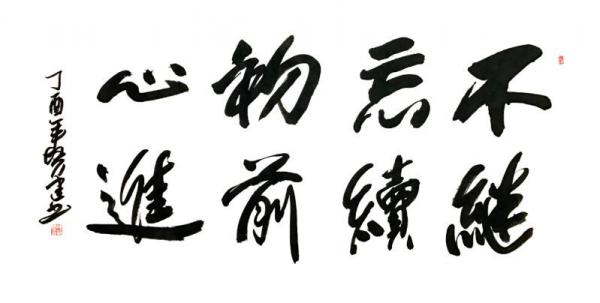 不忘初心
繼續前進
丁酉年